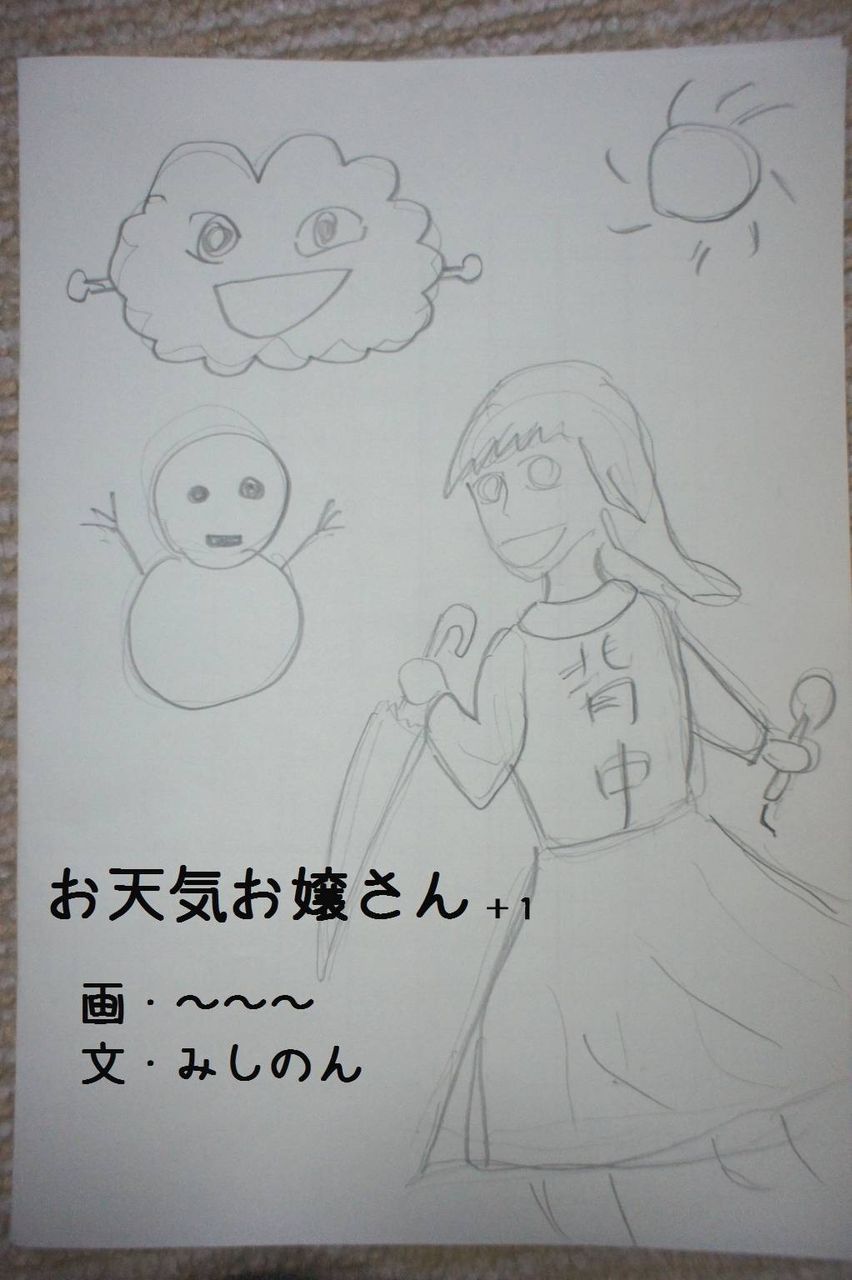 背中
お天気お嬢さん +1
画・〜〜〜
文・みしのん